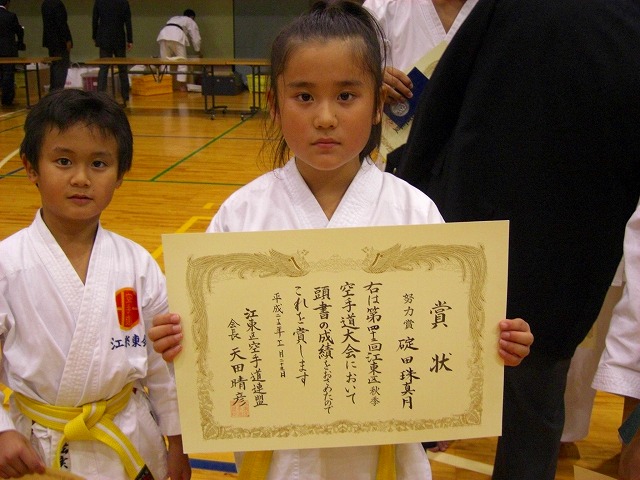 賞状
努力賞 碇田珠真月
右は第四十三回江東区秋季
空手道大会において
頭書の成績をおさめたので
これを賞します
江東区空手道連盟
会長 天田晴彦
江東東会